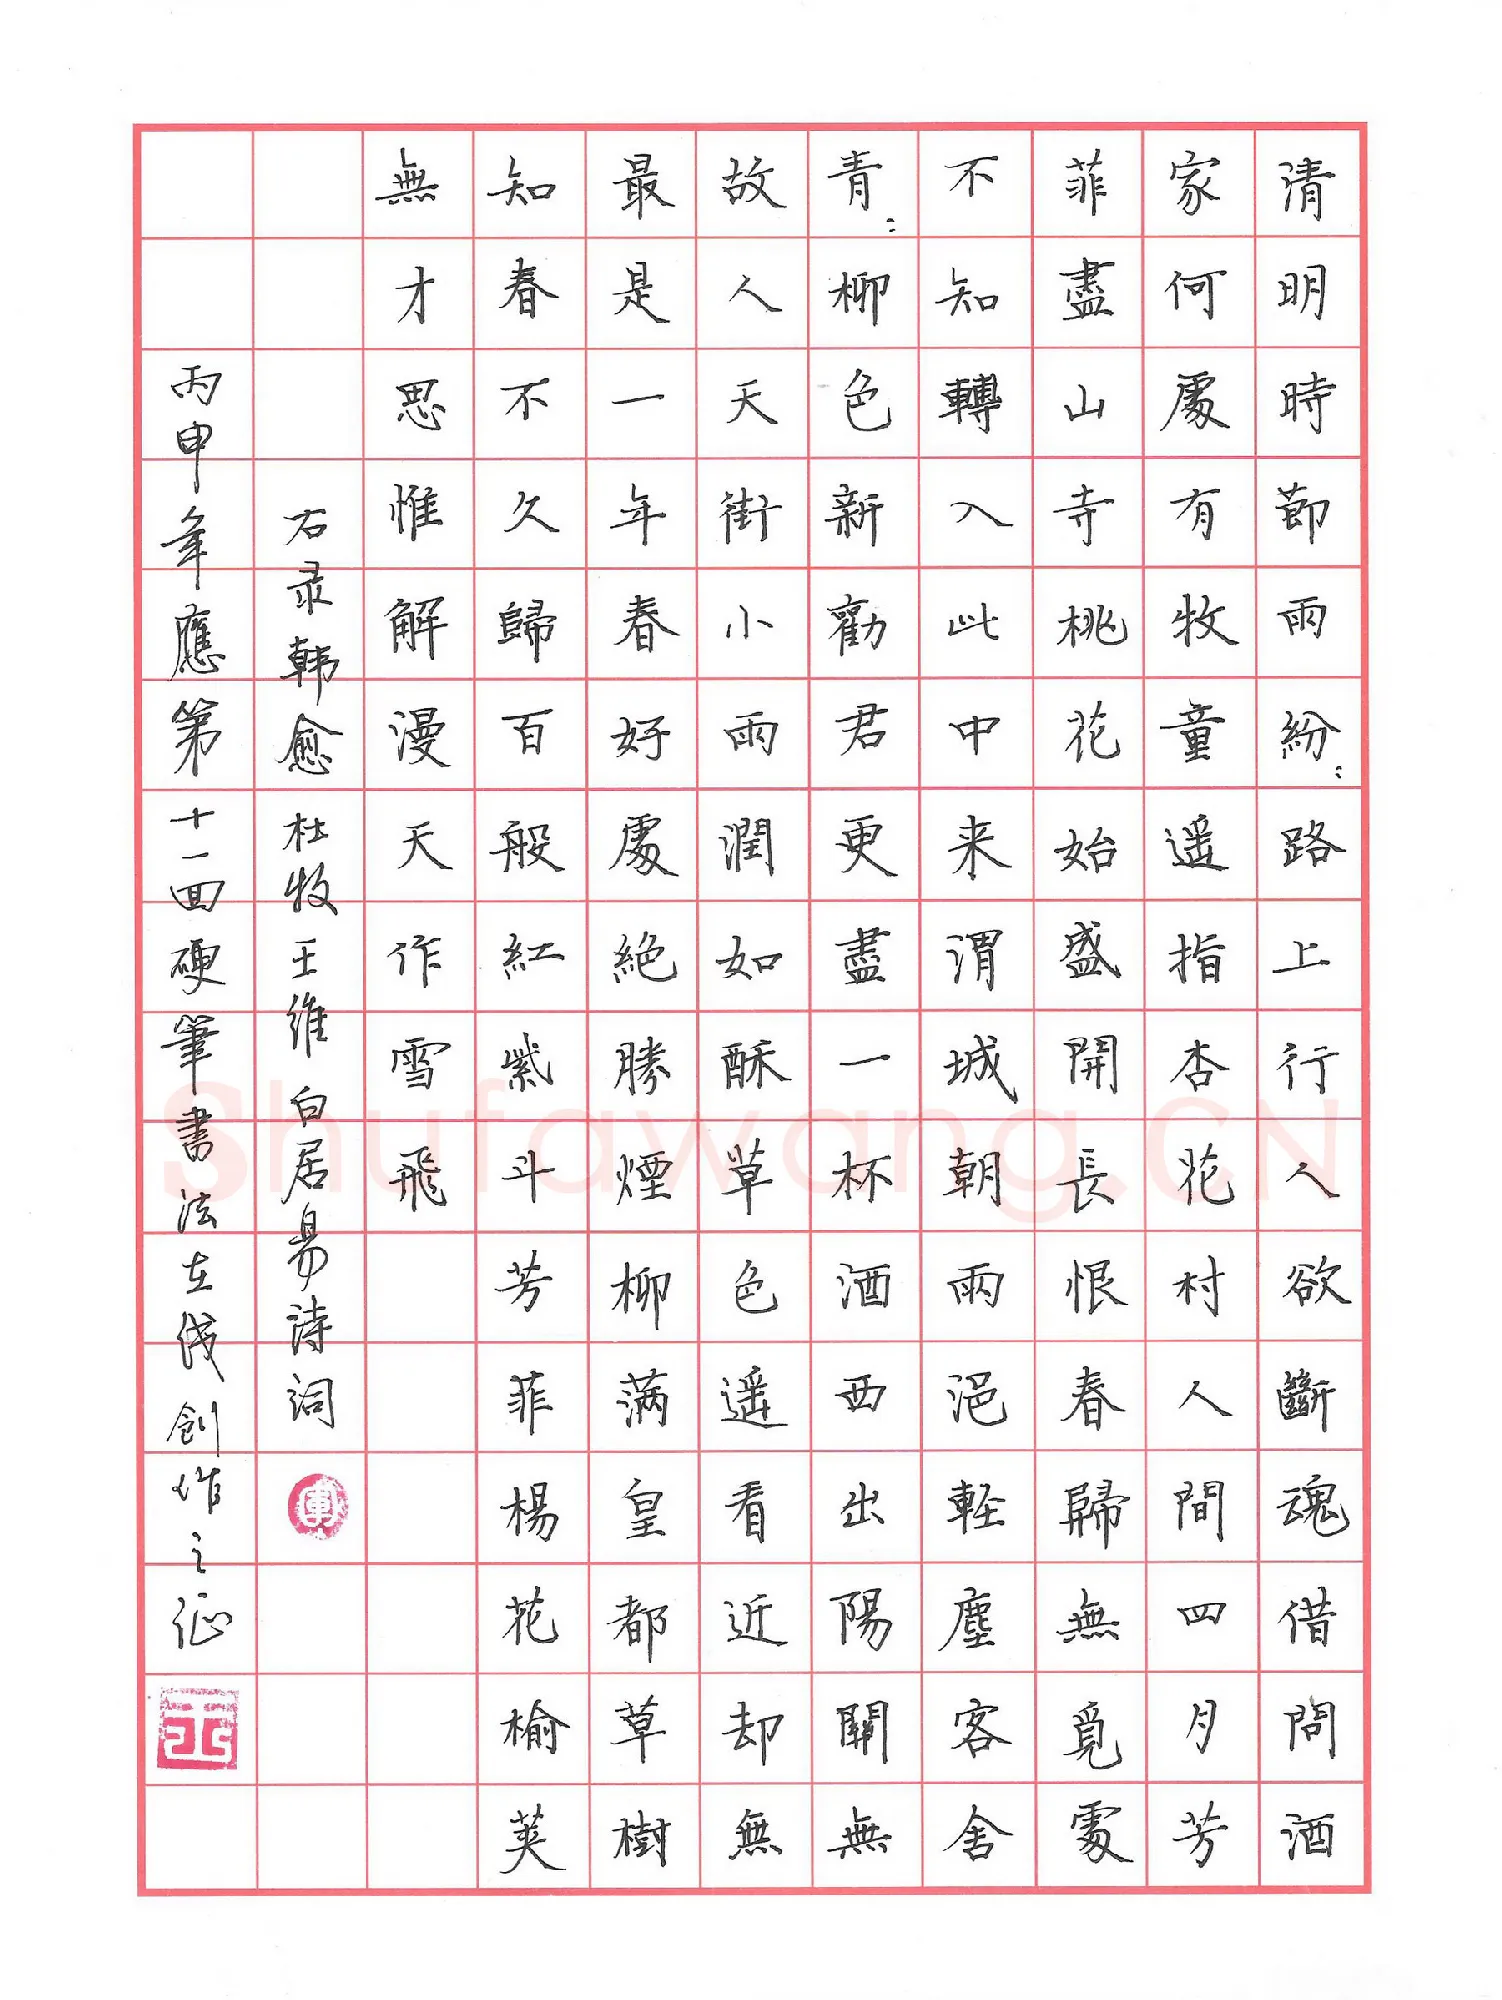 清明時節雨紛:路上行人欲斷魂借問酒
家何處有牧童遥指杏花村人間四月芳
菲盡山寺桃花始盛開長恨春歸無覓處
不知轉入此中来渭城朝雨浥輕塵客舍
青:柳色新勸君更盡一杯酒西出陽關無
故人天街小雨潤如酥草色遥看近却無
最是一年春好處絶勝煙柳满皇都草樹
知春不久歸百般紅紫斗芳菲楊花榆荚
無才思惟解漫天作雪飛
右录韩愈杜牧王維白居易诗词
丙申年應第十一回硬筆書法在线創作之征
王
Shufawang.CN